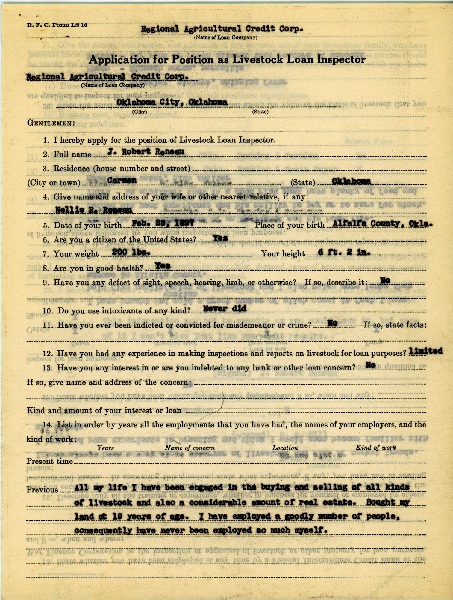 R. F. C. Form LS 16
Regional Agricultural Credit Corp.
(Name of Loan Company)
Application for Position as Livestock Loan Inspector
Regional Agricultural Credit Corp.
(Name of Loan Company)
Oklahoma City, Oklahoma
(City) (State)
GENTLEMEN:
1. I hereby apply for the position of Livestock Loan Inspector.
2. Full name J. Robert Reneau
3. Residence (house number and street)
(City or town) Carmen (State) Oklahoma
4. Give name and address of your wife or other nearest relative, if any
Nellie R. Reneau
5. Date of your birth Feb. 28, Place of your birth Alfalfa County, Okla.
6. Are you a citizen of the United States? Yes
7. Your weight 200 lbs. Your height 6 ft. 2 in.
8. Are you in good health? Yes
9. Have you any defect of sight, speech, hearing, limb, or otherwise? If so, describe it: No
10. Do you use intoxicants of any kind? Never did
11. Have you ever been indicted or convicted for misdemeanor or crime? No If so, state facts:
12. Have you had any experience in making inspections and reports on livestock for loan purposes? limited
13. Have you any interest in or are you indebted to any bank or other loan concern? No
If so, give name and address of the concern
Kind and amount of your interest or loan
14. List in order by years all the employments that you have had, the names of your employers, and the
kind of work:
Years Name of concern Location Kind of work
Present time
Previous All my life I have been engaged in the buying and selling of all kinds
of livestock and also a considerable amount of real estate. Bought my
land at 19 years of age. I have employed a goodly number of people,
consequently have never been employed so much myself.